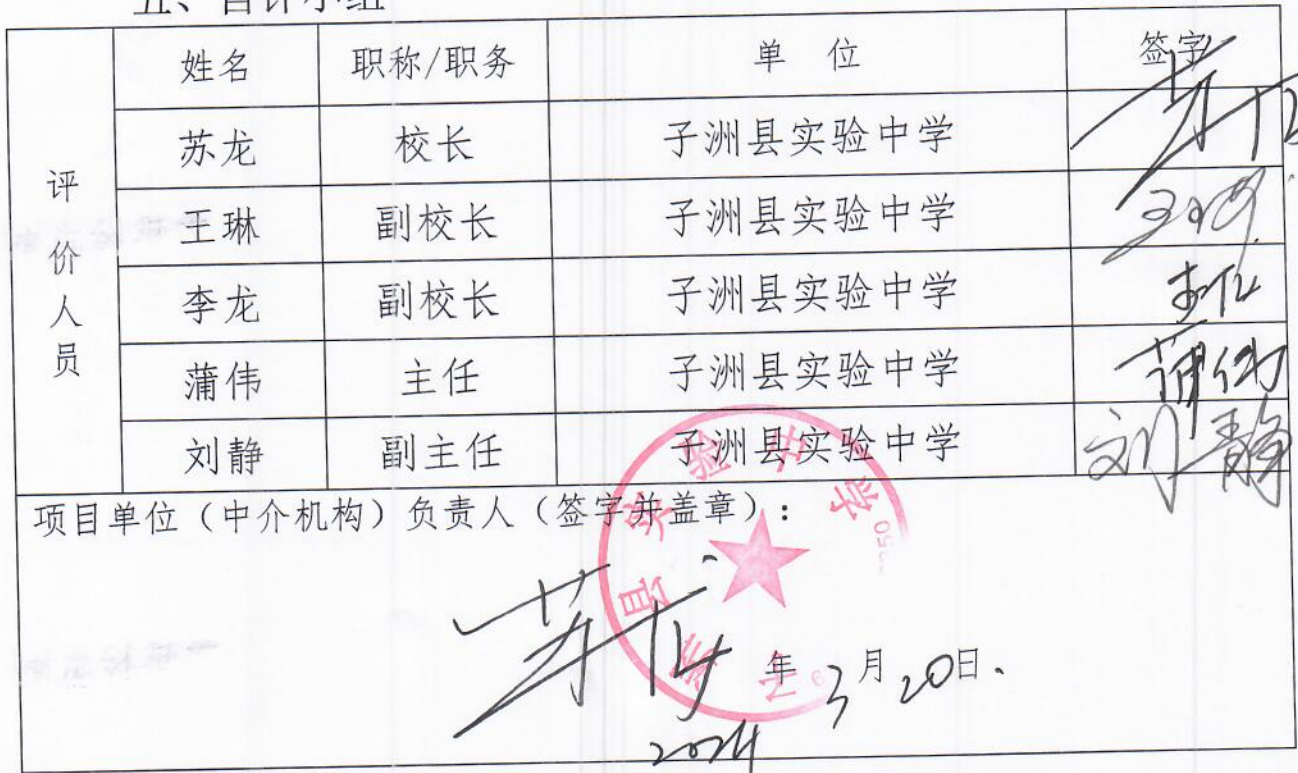 五、自评小组
评价人员
姓名 职称/职务 单 位 签字
苏龙 校长 子洲县实验中学 苏龙
王琳 副校长 子洲县实验中学 王琳
李龙 副校长 子洲县实验中学 李龙
蒲伟 主任 子洲县实验中学 蒲伟
刘静 副主任 子洲县实验中学 刘静
项目单位（中介机构）负责人（签字并盖章）：
子洲县实验中学
苏龙
2024年3月20日.